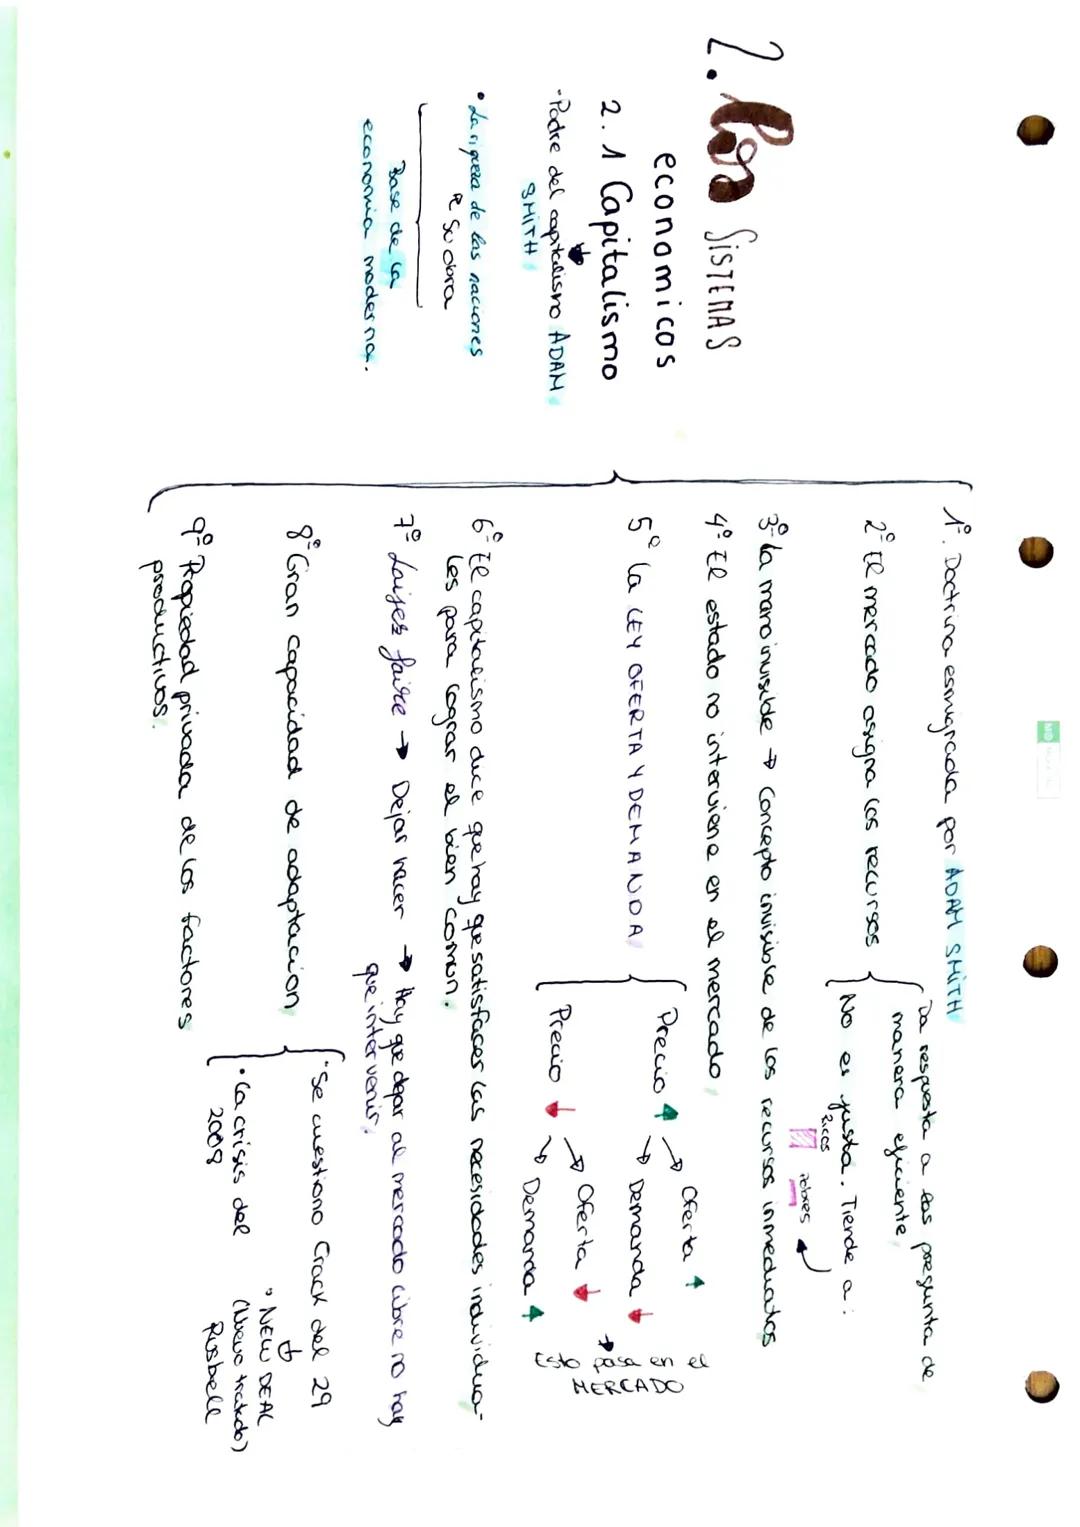 2. Los SISTEMAS
economicos
2. 1 Capitalismo
-Padre del capitalismo ADAM
SMITH
• La riqueza de las naciones
Su obra
Base de la
economia moderna.
1º. Doctrina esmigrada por ADAM SMITH
2º El mercado asigna los recursos
Da respuesta a las pregunta de
manera eficiente
No es justa. Tiende a:
ricos
pobres
3º La mano invisible → Concepto invisible de los recursos inmediatos
4º El estado no interviene en el mercado
5º La LEY OFERTA Y DEMANDA
Precio ↑ → Oferta ↑
→ Demanda ↓
Precio ↓ → Oferta ↓
→ Demanda ↑
→
Esto pasa en el
MERCADO
6º El capitalismo dice que hay que satisfacer las necesidades individua-
les para lograr el bien comun.
7º Laijes faire → Dejar hacer → Hay que dejar al mercado libre no hay
que intervenir.
8º Gran capacidad de adaptacion
• Se cuestiono Crack del 29
• NEW DEAL
(Nuevo tratado)
Rusbell
• La crisis del
2008
9º Propiedad privada de los factores
productivos.